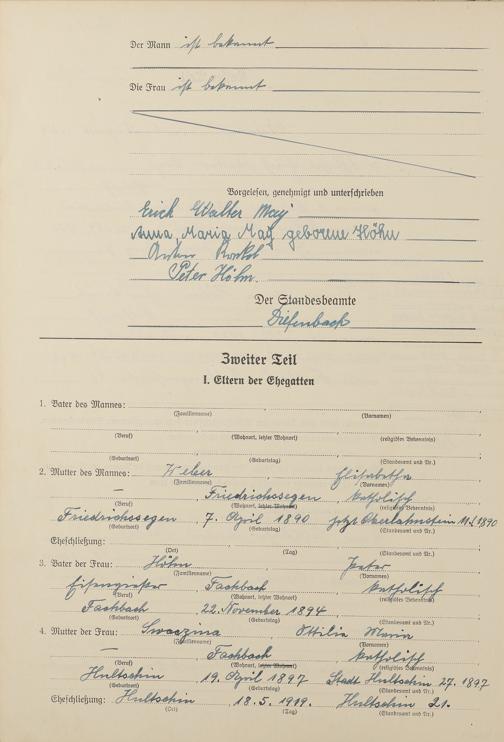 Der Mann ist bekannt
Die Frau ist bekannt
Vorgelesen, genehmigt und unterschrieben
Erich Walter May
Anna Maria May geborene Höhn
Anton
Peter Höhn.
Der Standesbeamte
Diefenbach
Zweiter Teil
I. Eltern der Ehegatten
1. Vater des Mannes:
(Familienname) (Vornamen)
(Beruf) (Wohnort, letzter Wohnort) (religiöses Bekenntnis)
(Geburtsort) (Geburtstag) (Standesamt und Nr.)
2. Mutter des Mannes: Weber Elisabetha
(Familienname) (Vornamen)
— Friedrichssegen katholisch
(Beruf) (Wohnort, letzter Wohnort) (religiöses Bekenntnis)
Friedrichssegen 7. April 1890 jetzt Oberlahnstein 1890
(Geburtsort) (Geburtstag) (Standesamt und Nr.)
Eheschließung:
(Ort) (Tag) (Standesamt und Nr.)
3. Vater der Frau: Höhn Peter
(Familienname) (Vornamen)
Eisengießer Fachbach katholisch
(Beruf) (Wohnort, letzter Wohnort) (religiöses Bekenntnis)
Fachbach 22. November 1894
(Geburtsort) (Geburtstag) (Standesamt und Nr.)
4. Mutter der Frau: Swaczina Ottilia Maria
(Familienname) (Vornamen)
— Fachbach katholisch
(Beruf) (Wohnort, letzter Wohnort) (religiöses Bekenntnis)
Hultschin 19. April 1897 Stadt Hultschin 27. 1897
(Geburtsort) (Geburtstag) (Standesamt und Nr.)
Eheschließung: Hultschin 18. 5. 1919. Hultschin 21.
(Ort) (Tag) (Standesamt und Nr.)